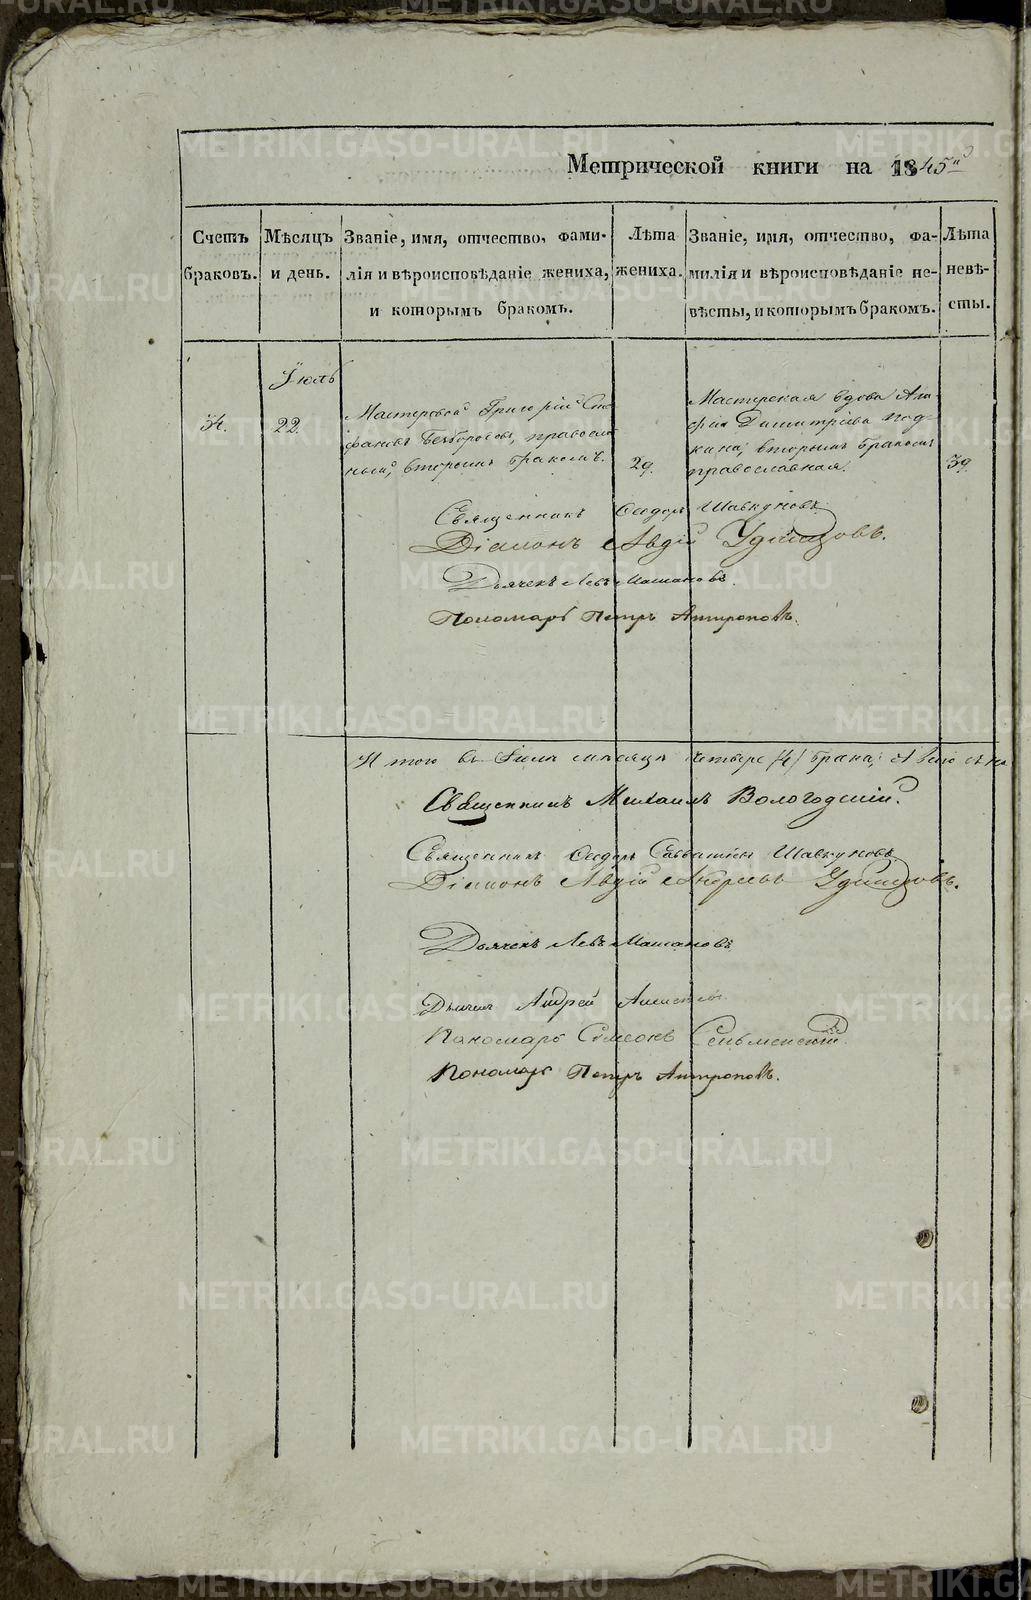 Метрической книги на 1845й
Счетъ браковъ.
Мѣсяцъ и день.
Званіе, имя, отчество, фами-
лія и вѣроисповѣданіе жениха,
и которымъ бракомъ.
Лѣта жениха.
Званіе, имя, отчество, фа-
милія и вѣроисповѣданіе не-
вѣсты, и которымъ бракомъ.
Лѣта невѣ-
сты.
Іюль
34.
22.
Мастеровой Григорій Сте
фановъ православ
ный, вторымъ бракомъ.
29.
Мастерская вдова Ага
фия Димитріева
вторымъ бракомъ
православная.
39.
Священникъ Ѳеодоръ Шавкуновъ
Діаконъ Авдій Удинцовъ.
Дьячекъ Левъ Машановъ.
Пономарь Петръ Антроповъ.
Итого въ Іюлѣ мѣсяцѣ четыре /4/ брака;
Священникъ Михаилъ Вологодскій.
Священникъ Ѳеодоръ Савватіевъ Шавкуновъ
Діаконъ Авдій Андреевъ Удинцовъ.
Дьячекъ Левъ Машановъ
Дьячекъ Андрей
Пономарь Сѵмеонъ
Пономарь Петръ Антроповъ.
METRIKI.GASO-URAL.RU